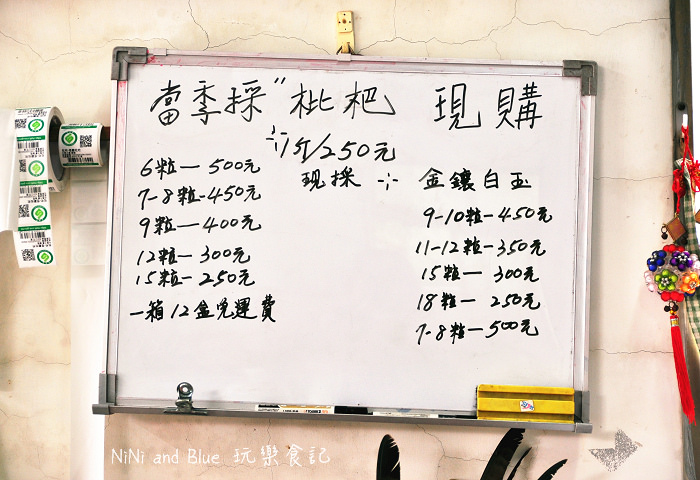 當季採"枇杷 現購
1斤/250元
現採
6粒—500元
7-8粒-450元
9粒—400元
12粒—300元
15粒—250元
一箱12盒免運費
金鑲白玉
9-10粒-450元
11-12粒-350元
15粒—300元
18粒—250元
7-8粒—500元
NiNi and Blue 玩樂食記